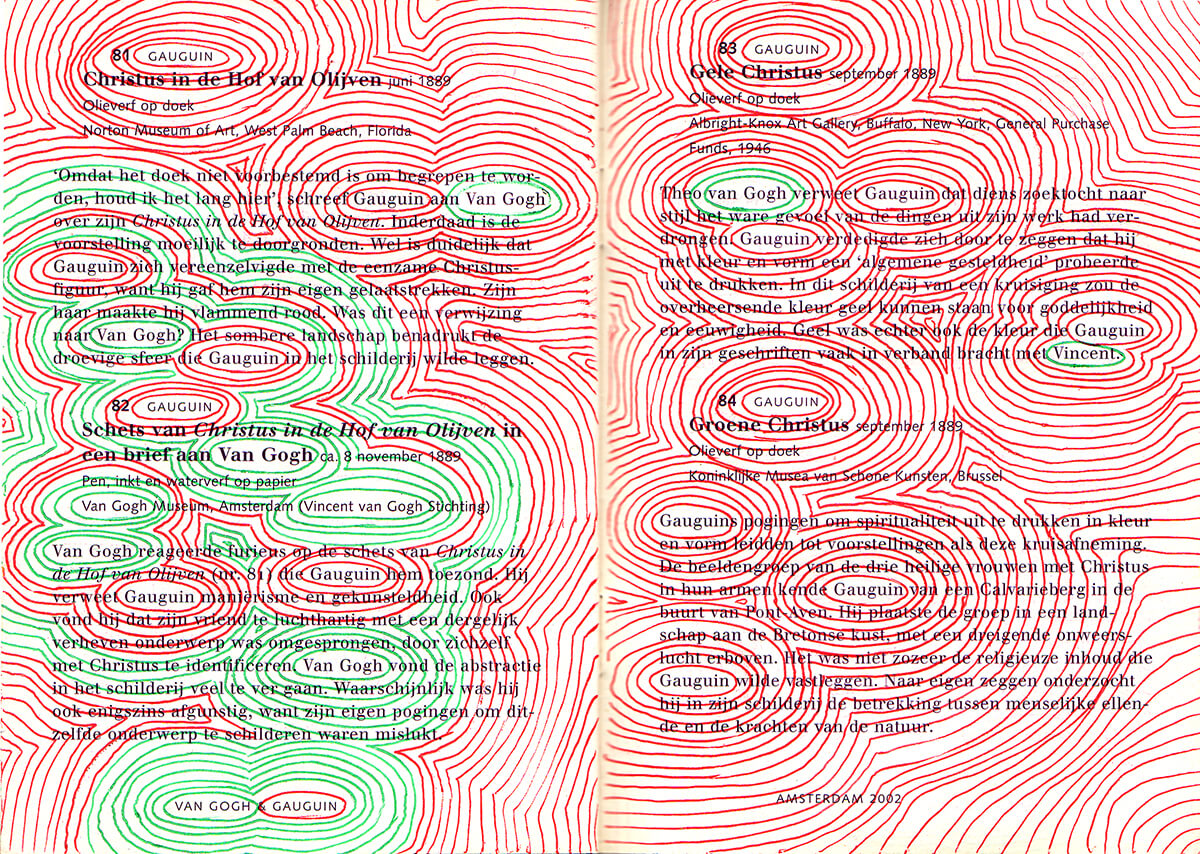 81 GAUGUIN
Christus in de Hof van Olijven juni 1889
Olieverf op doek
Norton Museum of Art, West Palm Beach, Florida
‘Omdat het doek niet voorbestemd is om begrepen te wor-
den, houd ik het lang hier’, schreef Gauguin aan Van Gogh
over zijn Christus in de Hof van Olijven. Inderdaad is de
voorstelling moeilijk te doorgronden. Wel is duidelijk dat
Gauguin zich vereenzelvigde met de eenzame Christus-
figuur, want hij gaf hem zijn eigen gelaatstrekken. Zijn
haar maakte hij vlammend rood. Was dit een verwijzing
naar Van Gogh? Het sombere landschap benadrukt de
droevige sfeer die Gauguin in het schilderij wilde leggen.
82 GAUGUIN
Schets van Christus in de Hof van Olijven in
een brief aan Van Gogh ca. 8 november 1889
Pen, inkt en waterverf op papier
Van Gogh Museum, Amsterdam (Vincent van Gogh Stichting)
Van Gogh reageerde furieus op de schets van Christus in
de Hof van Olijven (nr. 81) die Gauguin hem toezond. Hij
verweet Gauguin maniërisme en gekunsteldheid. Ook
vond hij dat zijn vriend te luchthartig met een dergelijk
verheven onderwerp was omgesprongen, door zichzelf
met Christus te identificeren. Van Gogh vond de abstractie
in het schilderij veel te ver gaan. Waarschijnlijk was hij
ook enigszins afgunstig, want zijn eigen pogingen om dit-
zelfde onderwerp te schilderen waren mislukt.
VAN GOGH & GAUGUIN
83 GAUGUIN
Gele Christus september 1889
Olieverf op doek
Albright-Knox Art Gallery, Buffalo, New York, General Purchase
Funds, 1946
Theo van Gogh verweet Gauguin dat diens zoektocht naar
stijl het ware gevoel van de dingen uit zijn werk had ver-
drongen. Gauguin verdedigde zich door te zeggen dat hij
met kleur en vorm een ‘algemene gesteldheid’ probeerde
uit te drukken. In dit schilderij van een kruisiging zou de
overheersende kleur geel kunnen staan voor goddelijkheid
en eeuwigheid. Geel was echter ook de kleur die Gauguin
in zijn geschriften vaak in verband bracht met Vincent.
84 GAUGUIN
Groene Christus september 1889
Olieverf op doek
Koninklijke Musea van Schone Kunsten, Brussel
Gauguins pogingen om spiritualiteit uit te drukken in kleur
en vorm leidden tot voorstellingen als deze kruisafneming.
De beeldengroep van de drie heilige vrouwen met Christus
in hun armen kende Gauguin van een Calvarieberg in de
buurt van Pont-Aven. Hij plaatste de groep in een land-
schap aan de Bretonse kust, met een dreigende onweers-
lucht erboven. Het was niet zozeer de religieuze inhoud die
Gauguin wilde vastleggen. Naar eigen zeggen onderzocht
hij in zijn schilderij de betrekking tussen menselijke ellen-
de en de krachten van de natuur.
AMSTERDAM 2002